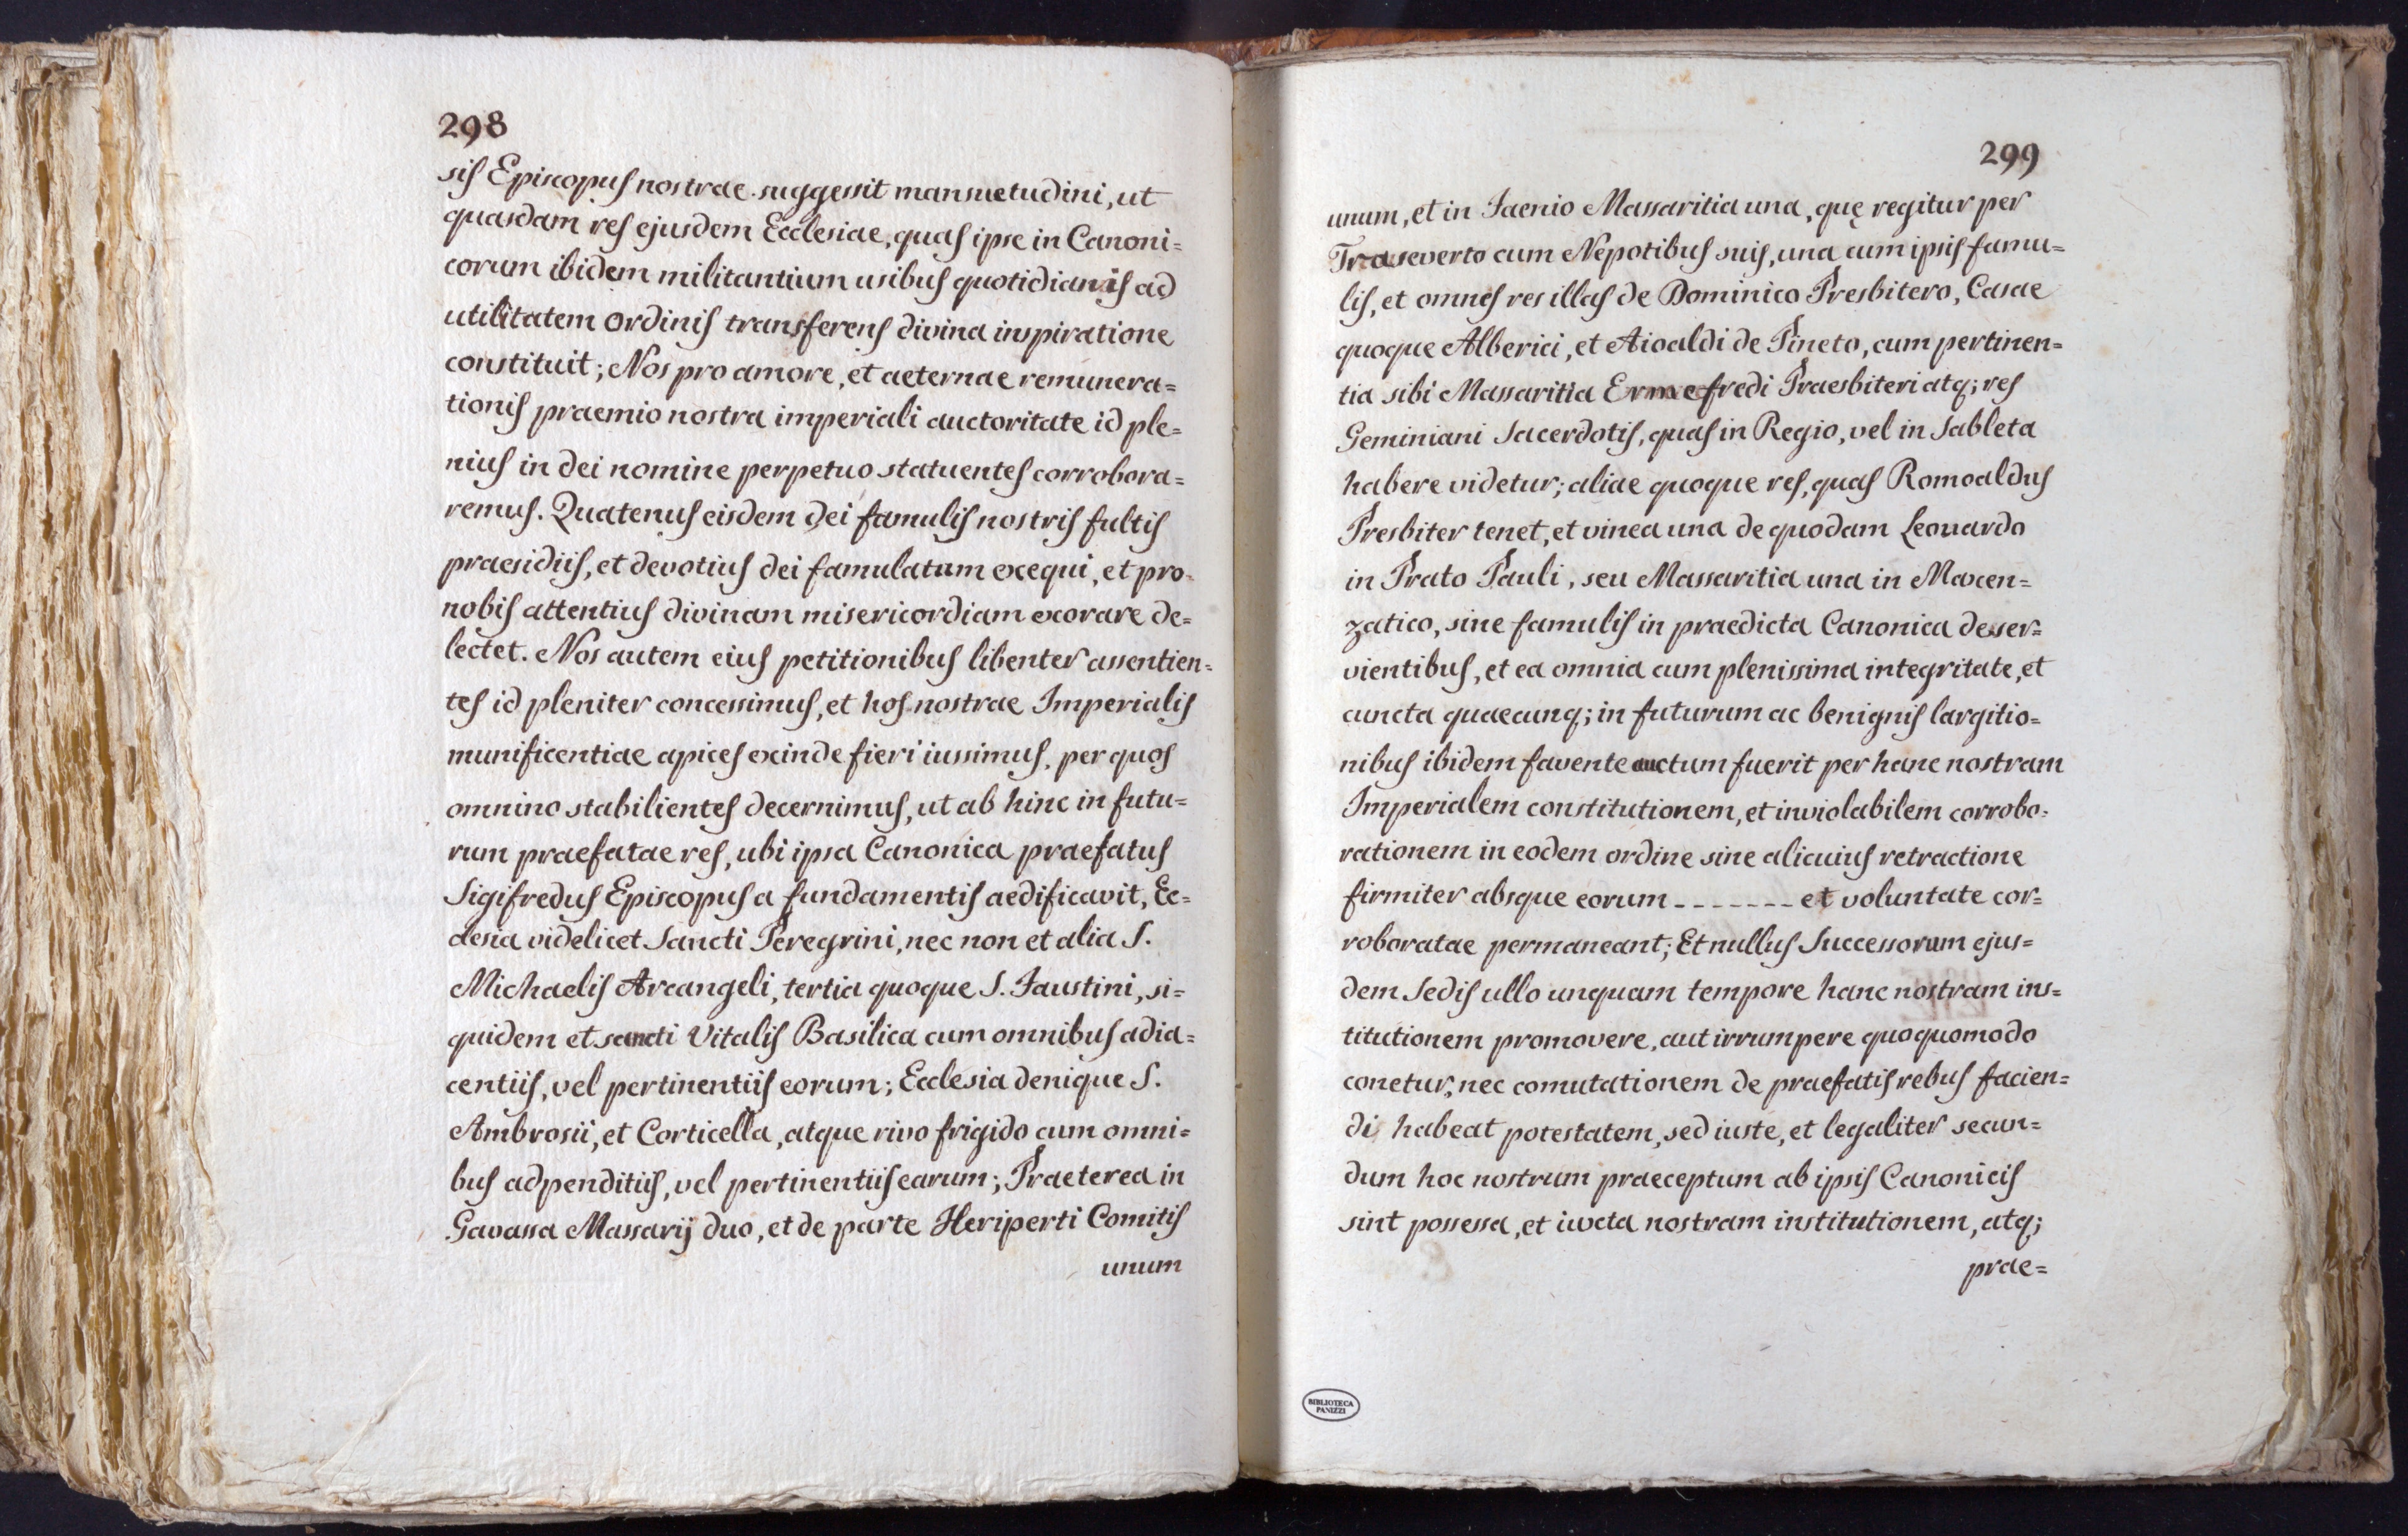 298
sis Episcopus nostrae suggessit mansuetudini, ut
quasdam res ejusdem Ecclesiae, quas ipse in Canoni=
corum ibidem militantium usibus quotidianis ad
utilitatem ordinis transferens divina inspiratione
constituit; Nos pro amore, et aeternae remunera=
tionis praemio nostra imperiali auctoritate id ple=
nius in dei nomine perpetuo statuentes corrobora=
remus. Quatenus eisdem dei famulis nostris fultis
praesidiis, et devotius dei famulatum exequi, et pro
nobis attentius divinam misericordiam exorare de=
lectet. Nos autem eius petitionibus libenter assentien=
tes id pleniter concessimus, et hos nostrae Imperialis
munificentiae apices exinde fieri iussimus, per quos
omnino stabilientes decernimus, ut ab hinc in futu=
rum praefatae res, ubi ipsa Canonica praefatus
Sigifredus Episcopus a fundamentis aedificavit, Ec=
clesia videlicet Sancti Peregrini, nec non et alia S.
Michaelis Arcangeli, tertia quoque S. Faustini, si=
quidem et sancti Vitalis Basilica cum omnibus adia=
centiis, vel pertinentiis eorum; Ecclesia denique S.
Ambrosii, et Corticella, atque rivo frigido cum omni=
bus adpenditiis, vel pertinentiis earum; Praeterea in
Gavassa Massarij duo, et de parte Heriperti Comitis
unum
299
unum, et in Faenio Massaritia una, quę regitur per
Traseverto cum Nepotibus suis, una cum ipsis famu=
lis, et omnes res illas de Dominico Presbitero, Casae
quoque Alberici, et Aioaldi de Pineto, cum pertinen=
tia sibi Massaritia Ermefredi Praesbiteri atq; res
Geminiani Sacerdotis, quas in Regio, vel in Sableta
habere videtur; aliae quoque res, quas Romoaldus
Presbiter tenet, et vinea una de quodam Leonardo
in Prato Pauli, seu Massaritia una in Maxen=
zatico, sine famulis in praedicta Canonica deser=
vientibus, et ea omnia cum plenissima integritate, et
cuncta quaecunq; in futurum ac benignis largitio=
nibus ibidem favente auctum fuerit per hanc nostram
Imperialem constitutionem, et inviolabilem corrobo=
rationem in eodem ordine sine alicuius retractione
firmiter absque eorum _ _ _ _ _ _ _ et voluntate cor=
roboratae permaneant; Et nullus Successorum ejus=
dem Sedis ullo unquam tempore hanc nostram ins=
titutionem promovere, aut irrumpere quoquomodo
conetur, nec comutationem de praefatis rebus facien=
di habeat potestatem, sed iuste, et legaliter secun=
dum hoc nostrum praeceptum ab ipsis Canonicis
sint possessa, et iuxta nostram institutionem, atq;
prae=
BIBLIOTECA
PANIZZI